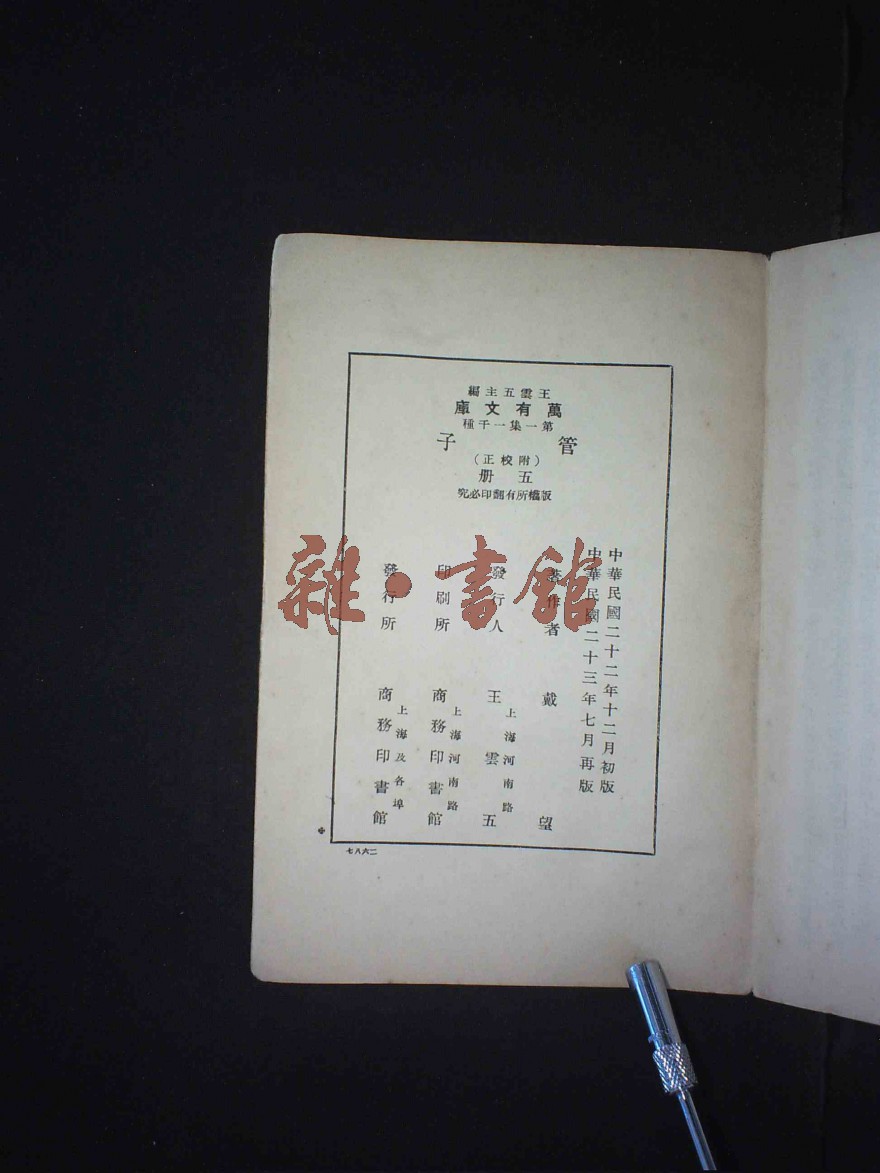 王雲五主編
萬有文庫
第一集一千種
管子
(附校正)
五册
版權所有翻印必究
中華民國二十二年十二月初版
中華民國二十三年七月再版
著作者 戴望
發行人 上海河南路 王雲五
印刷所 上海河南路 商務印書館
發行所 上海及各埠 商務印書館
二六八七
雜·書館